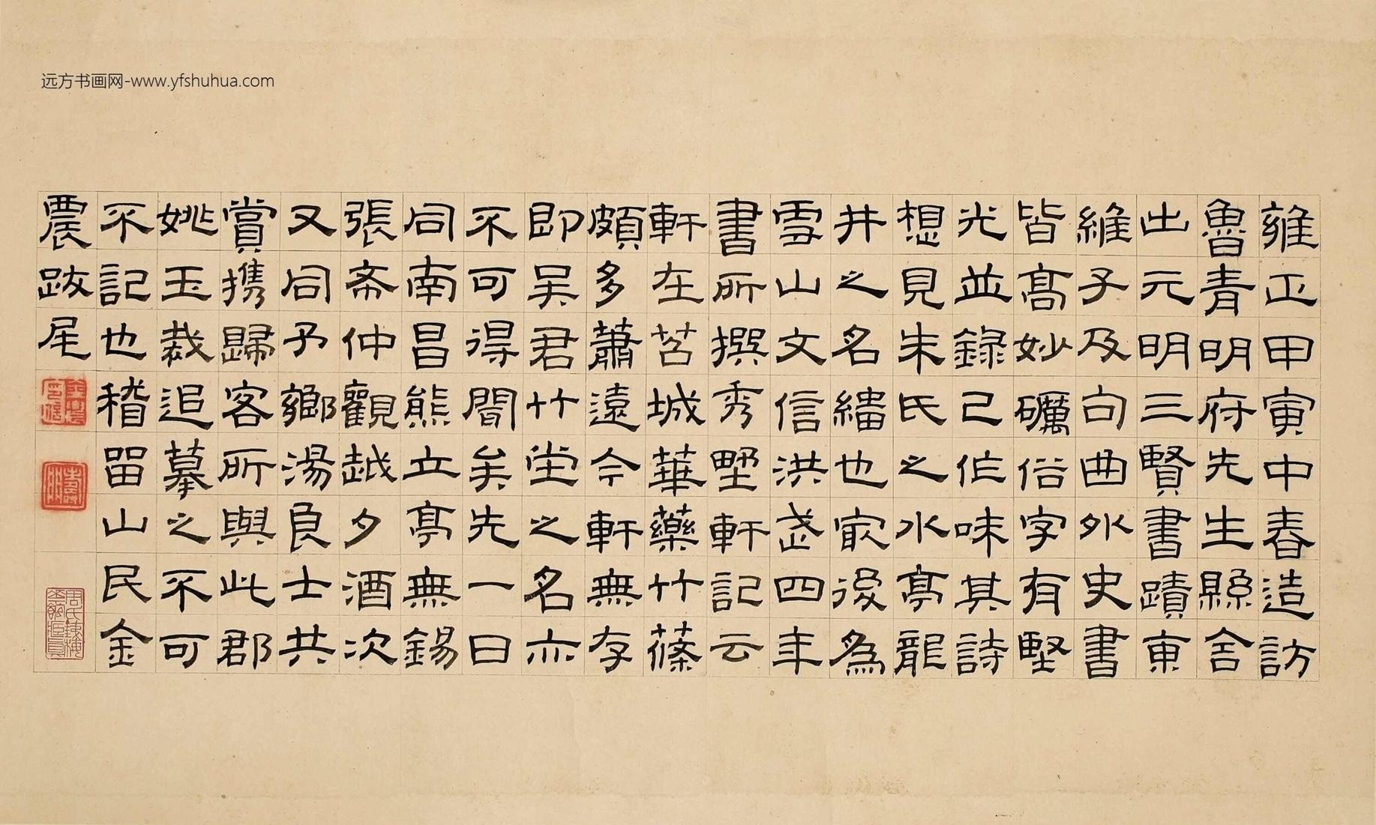 远方书画网-www.yfshuhua.com
雍正甲寅中春造訪
魯青明府先生縣舍
出元明三賢書蹟東
維子及句曲外史書
皆高妙礪俗字有堅
光並錄己作味其詩
想見朱氏之水亭龍
井之名繣也叞後為
雪山文信洪武四年
書所撰秀野軒記云
軒在苕城華藥竹篠
頗多蕭遠今軒無存
即吳君竹堂之名亦
不可得聞矣先一日
同南昌熊立亭無錫
張斋仲觀越夕酒次
又同予鄉湯良士共
賞攜歸客所與此郡
姚玉裁追摹之不可
不記也稽留山民金
農跋尾